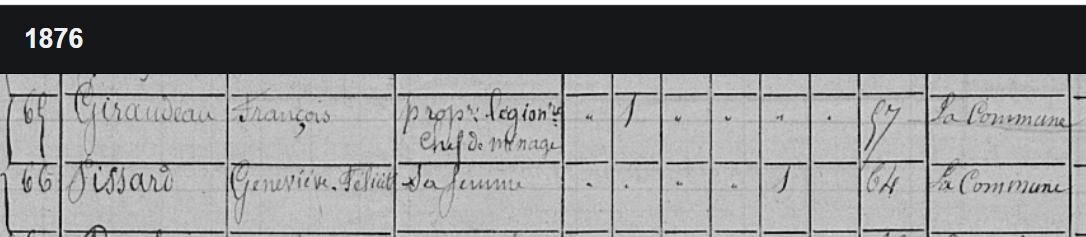 1876
65 Giraudeau François propr. légionre " 1 " " " " 57 La Commune
Chef de ménage
66 Pissard Geneviève-Félicité Sa femme " " " " 1 64 La Commune